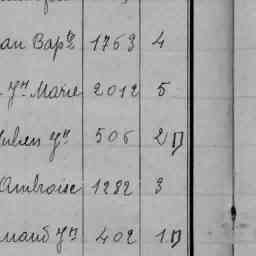 an Bap.te 1763 4
Jn Marie 2012 5
ulien Jn 506 2
Ambroise 1282 3
mand Jn 402 1